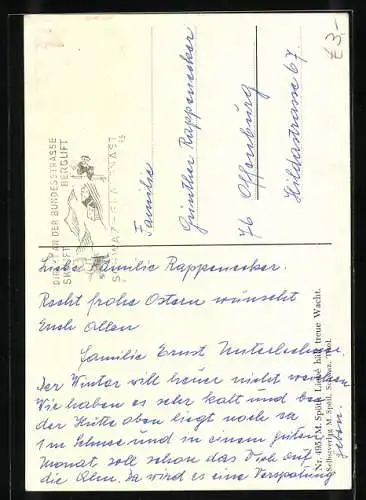 €3,-
DIREKT AN DER BUNDESSTRASSE
SKILIFT BERGLIFT
Familie
Günther Rappenecker
76 Offenburg
Hildastrasse 67.
Liebe Familie Rappenecker.
Recht frohe Ostern wünscht
Euch Allen
Familie Ernst
Der Winter will heuer nicht weichen
Wir haben es sehr kalt und bei
der Hütte oben liegt noch ca
1 m Schnee und in einem guten
Monat soll schon das Vieh auf
die Alm. Da wird es eine Verspätung
geben.
Nr. 4951 M. Spötls Liesl hält treue Wacht.
Selbstverlag M. Spötl, Schwaz, Tirol.